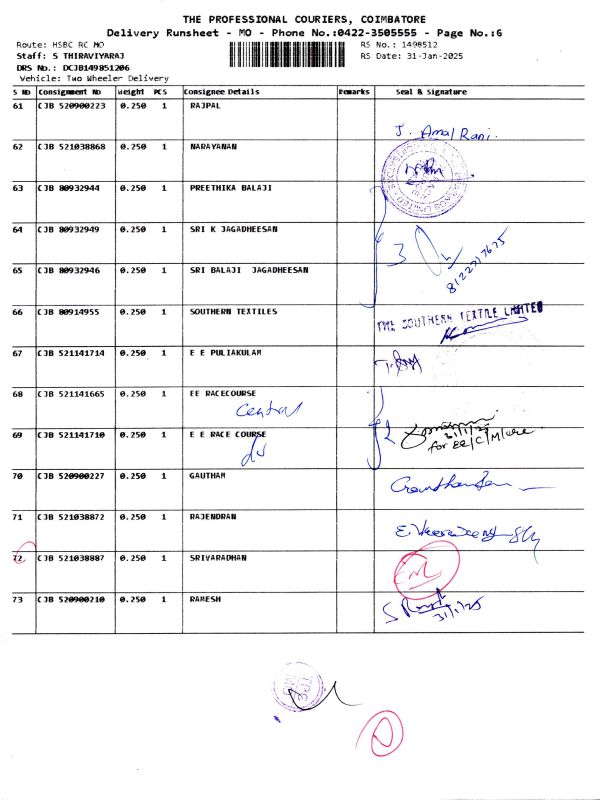 THE PROFESSIONAL COURIERS, COIMBATORE
Delivery Runsheet - MO - Phone No.:0422-3505555 - Page No.:6
Route: HSBC RC MO
RS No.: 1498512
Staff: S THIRAVIYARAJ
RS Date: 31-Jan-2025
DRS No.: DCJB149851206
Vehicle: Two Wheeler Delivery
S No Consignment No Weight PCS Consignee Details Remarks Seal & Signature
61 CJB 520900223 0.250 1 RAJPAL
J. Amal Rani.
62 CJB 521038868 0.250 1 NARAYANAN
63 CJB 80932944 0.250 1 PREETHIKA BALAJI
64 CJB 80932949 0.250 1 SRI K JAGADHEESAN
3
65 CJB 80932946 0.250 1 SRI BALAJI JAGADHEESAN
66 CJB 80914955 0.250 1 SOUTHERN TEXTILES
THE SOUTHERN TEXTILE LIMITED
67 CJB 521141714 0.250 1 E E PULIAKULAM
68 CJB 521141665 0.250 1 EE RACECOURSE
Central
69 CJB 521141710 0.250 1 E E RACE COURSE
31/1/25
for EE/C/M/
70 CJB 520900227 0.250 1 GAUTHAM
71 CJB 521038872 0.250 1 RAJENDRAN
72 CJB 521038887 0.250 1 SRIVARADHAN
73 CJB 520900210 0.250 1 RAMESH
31/1/25